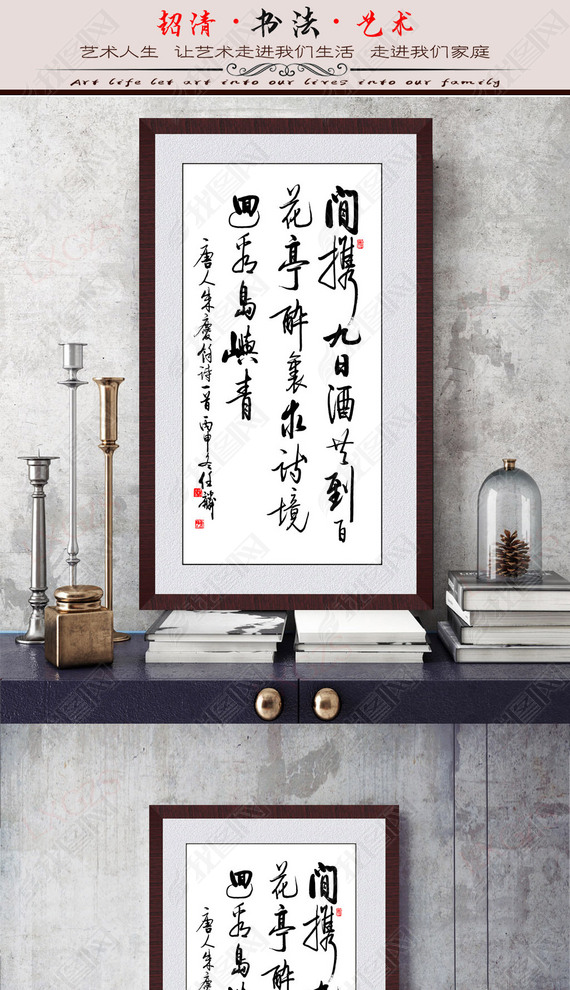 清·书法·艺术
艺术人生 让艺术走进我们生活 走进我们家庭
Art life let art into our lives into our family
閒携九日酒共到百
花亭醉裏求詩境
回看島嶼青
唐人朱慶餘詩一首丙申冬仕麟
閒携九
花亭醉
回看島
唐人朱慶